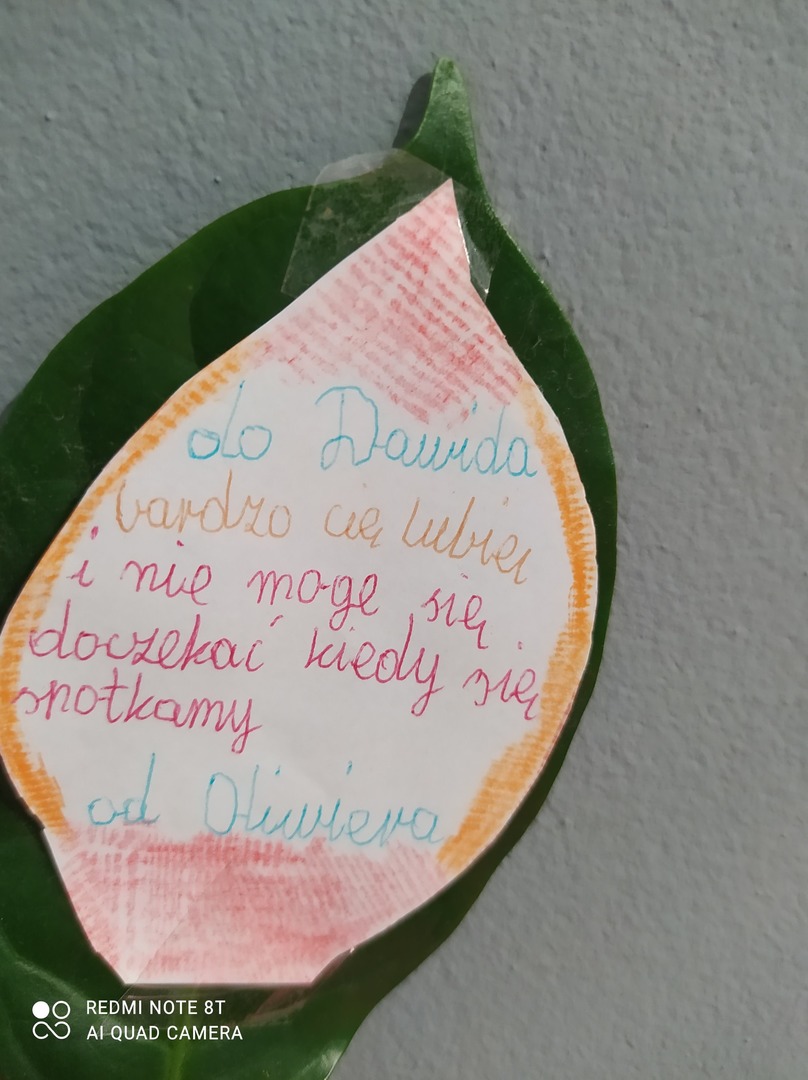 do Dawida
bardzo cię lubię
i nie mogę się
doczekać kiedy się
spotkamy
od Oliwiera
REDMI NOTE 8T
AI QUAD CAMERA